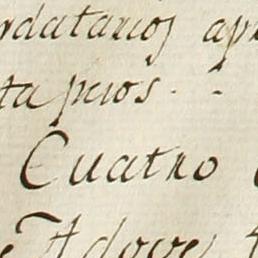 rdatarios ap
ta pcios.
Cuatro
e Adove